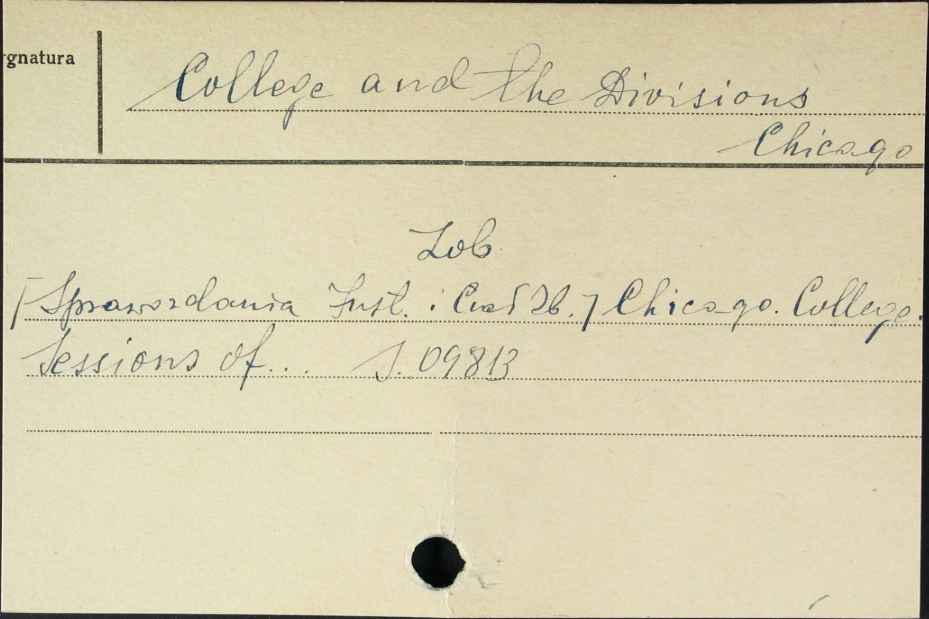 ygnatura
College and the Divisions
Chicago
Zob.
[Sprawozdania Inst. i Czas Zb.] Chicago. College.
Sessions of... S. 09813